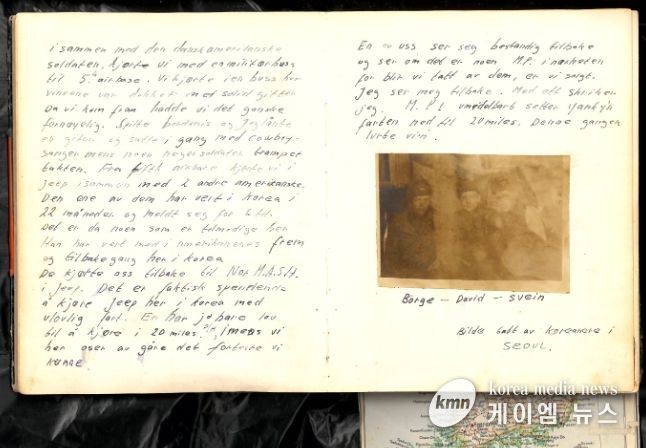 i sammen med den danskamerikanske
soldaten, kjørte vi med en militærbuss
til 5th airbase. Vi kjørte i en buss hvor
vinduene var dekket med solid gitter
Da vi kom fram hadde vi det ganske
fornøyelig. Spilte og jeg lånte
en gitar og satte i gang med cowboy-
sanger mens noen negersoldater trampet
takten. Fra fifth airbase kjørte vi i
jeep isammen med 2 andre amerikanske.
Den ene av dem har vert i Korea i
22 måneder og meldt seg for 6 til.
Det er da noen som er tålmodige her
Han har vert med i amerikanernes frem
og tilbakegang her i Korea
De kjørte oss tilbake til Nor.M.A.S.H.
i jeep. Det er faktisk spendende
å kjøre jeep her i Korea med
ulovlig fart. En har jo bare lov
til å kjøre i 20 miles. imens vi
her oser av gåre det forteste vi
kunne.
En av oss ser seg bestandig tilbake
og ser om det er noen M.P. i nærheten
for blir vi tatt av dem, er vi solgt.
Jeg ser meg tilbake. Med ett skriker
jeg. M.P! umiddelbart setter yankyn
farten ned til 20 miles. Denne gangen
lurte vi
Børge - David - Svein
Bilde tatt av koreanere i
SEOUL.
kmn
korea media news
케이엠 뉴스